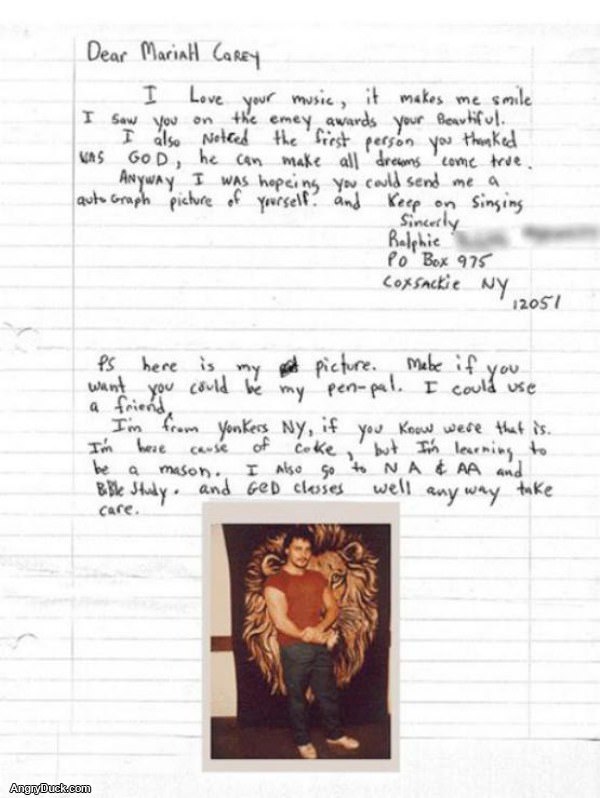 Dear Mariah Carey
I Love your music, it makes me smile
I saw you on the emey awards your Beautiful.
I also Noticed the first person you thanked
was GOD, he can make all dreams come true.
Anyway I was hopeing you could send me a
autograph picture of yourself. and Keep on Singing
Sincerly
Ralphie
PO Box 975
Coxsackie NY
12051
PS here is my picture. Mabe if you
want you could be my pen-pal. I could use
a friend,
I'm from Yonkers NY, if you Know were that is.
I'm here cause of coke, but I'm learning to
be a mason. I Also go to N A & AA and
Bible Study. and GED classes well any way take
care.
AngryDuck.com